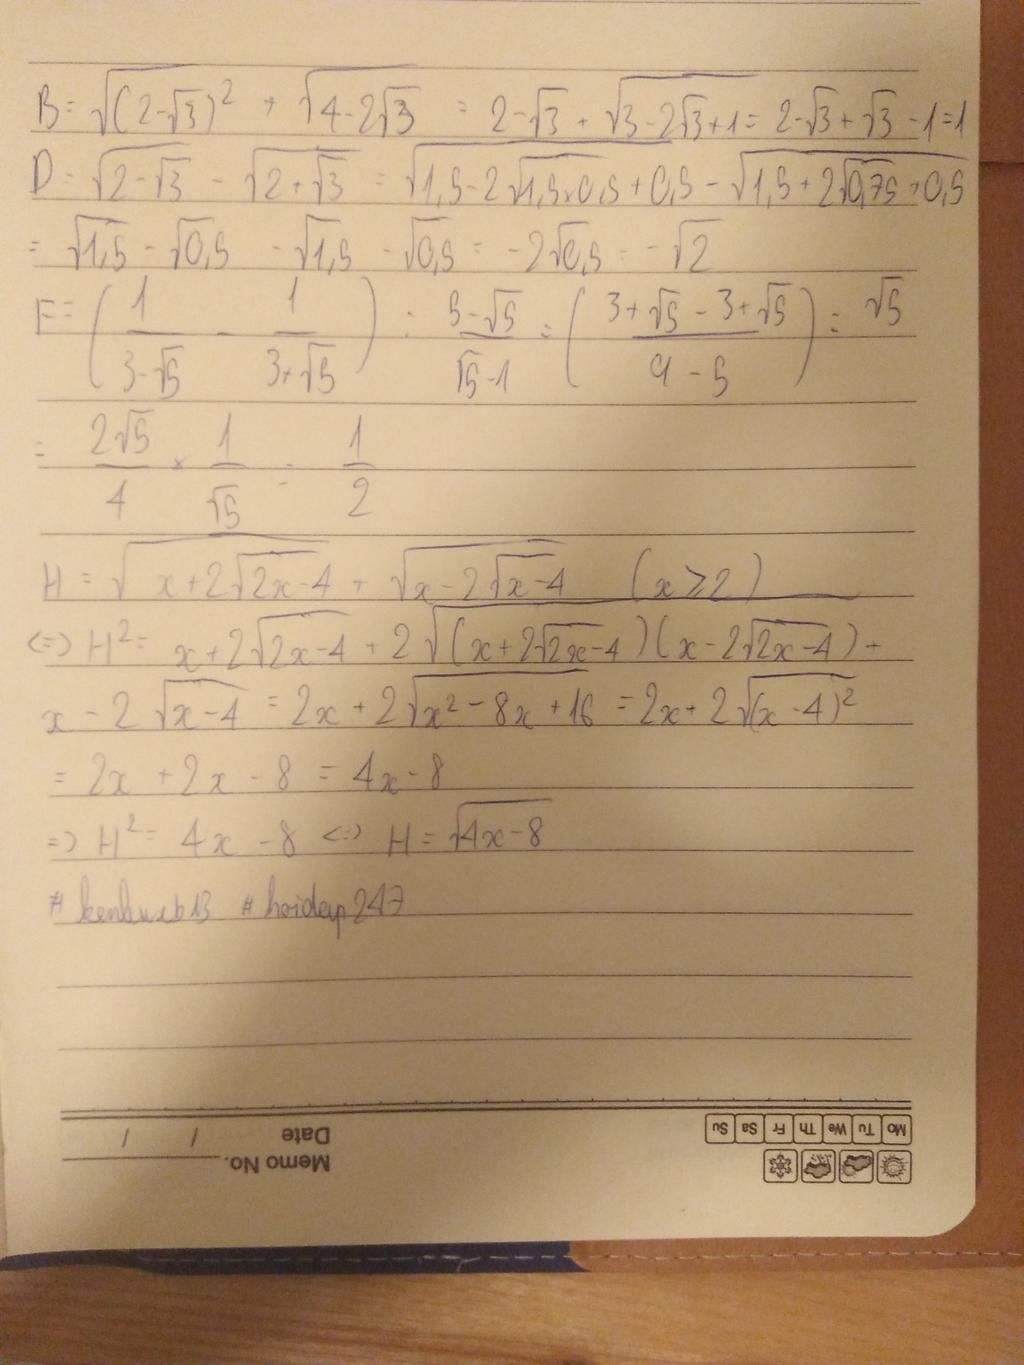 B = √(2-√3)² + √(4-2√3) = 2-√3 + √(3-2√3+1) = 2-√3+√3-1=1
D = √(2-√3) - √(2+√3) = √(1,5-2√(1,5×0,5)+0,5) - √(1,5+2√0,75+0,5)
= √1,5 - √0,5 - √1,5 - √0,5 = -2√0,5 = -√2
F = (1/(3-√5) - 1/(3+√5)) : (5-√5)/(√5-1) = ((3+√5-3+√5)/(9-5)) : √5
= 2√5/4 × 1/√5 = 1/2
H = √(x+2√(2x-4)) + √(x-2√(x-4)) (x≥2)
<=> H² = x+2√(2x-4) + 2√((x+2√(2x-4))(x-2√(2x-4))) +
x - 2√(x-4) = 2x+2√(x²-8x+16) = 2x+2√(x-4)²
= 2x+2x-8 = 4x-8
=> H² = 4x-8 <=> H = √(4x-8)
# hoidap247
Mo Tu We Th Fr Sa Su
Memo No.
Date / /